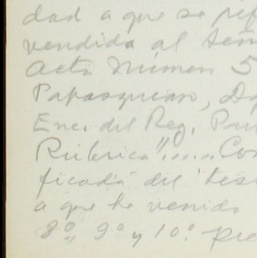 dad a que se ref
vendida al Señ
Acta Número 5
Papasquiaro, D
Enc. del Reg. Pu
Rúbrica"..... Con
ficada del tes
a que he venido
8º, 9º y 10º. Pre